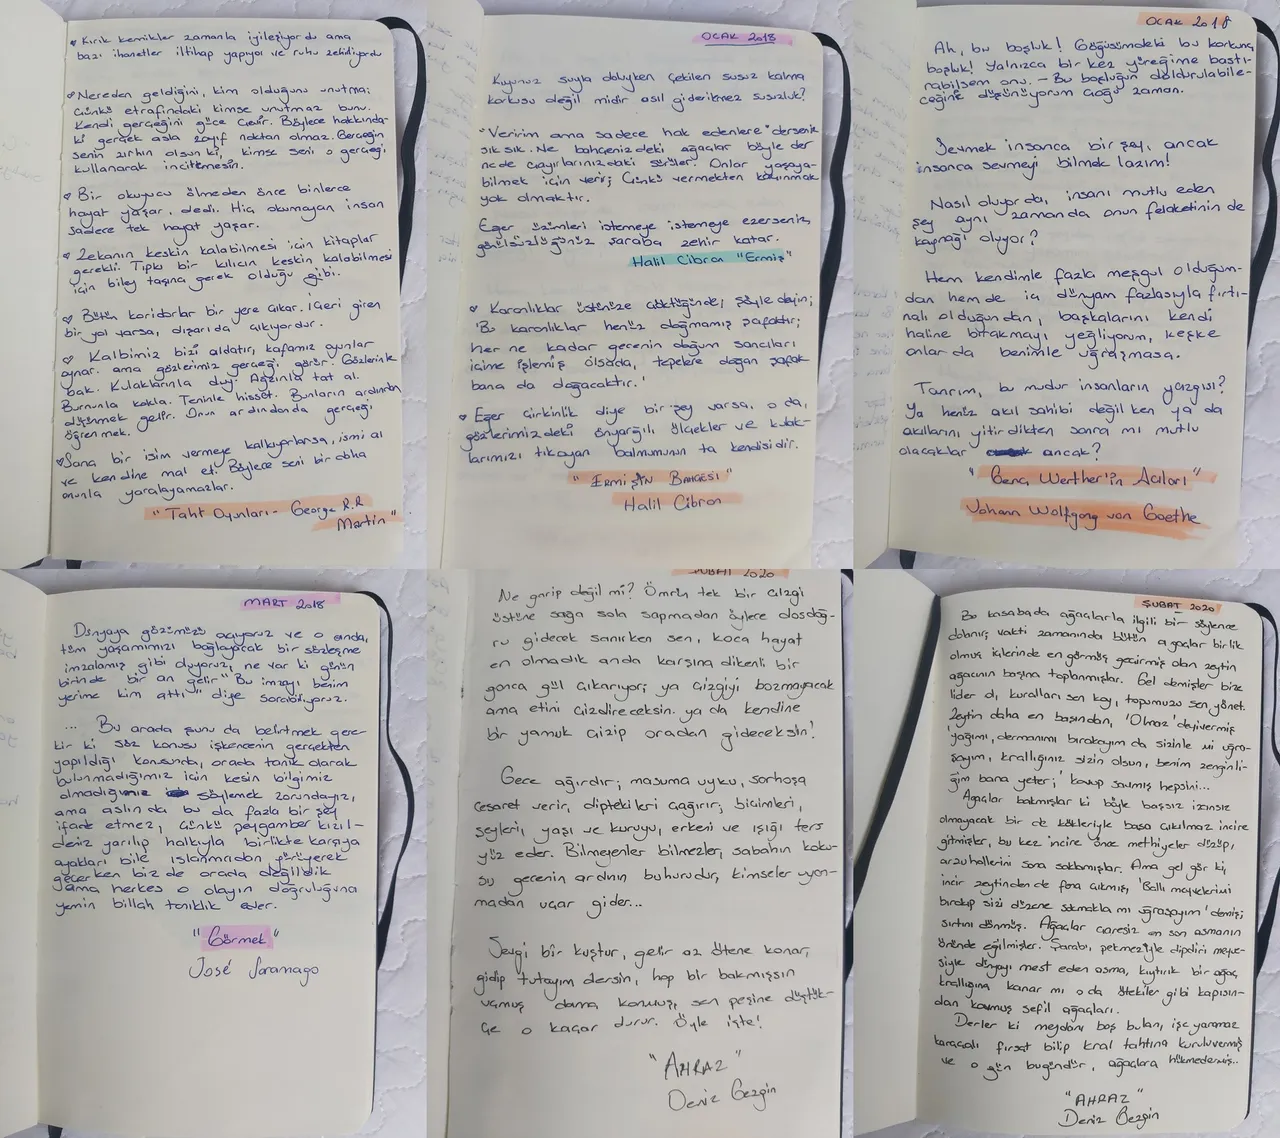 Kırık kemikler zamanla iyileşiyordu ama
bazı ihanetler iltihap yapıyor ve ruhu zehirliyordu
Nereden geldiğini, kim olduğunu unutma;
Çünkü etrafındaki kimse unutmaz bunu.
Kendi gerçeğini güce çevir. Böylece hakkında-
ki gerçek asla zayıf noktan olmaz. Gerçeğin
senin zırhın olsun ki, kimse seni o gerçeği
kullanarak incitemesin.
Bir okuyucu ölmeden önce binlerce
hayat yaşar, dedi. Hiç okumayan insan
sadece tek hayat yaşar.
Zekanın keskin kalabilmesi için kitaplar
gerekli. Tıpkı bir kılıcın keskin kalabilmesi
için biley taşına gerek olduğu gibi.
Bütün koridorlar bir yere çıkar. İçeri giren
bir yol varsa, dışarı da çıkıyordur.
Kalbimiz bizi aldatır, kafamız oyunlar
oynar. ama gözlerimiz gerçeği görür. Gözlerinle
bak. Kulaklarınla duy. Ağzınla tat al.
Burnunla kokla. Teninle hisset. Bunların ardından
düşünmek gelir. Onun ardından da gerçeği
öğrenmek.
Sana bir isim vermeye kalkıyorlarsa, ismi al
ve kendine mal et. Böylece seni bir daha
onunla yaralayamazlar.
"Taht Oyunları - George R.R
Martin"
OCAK 2018
Kuyunuz suyla doluyken çekilen susuz kalma
korkusu değil midir asıl giderilmez susuzluk?
"Veririm ama sadece hak edenlere" derseniz
sık sık. Ne bahçenizdeki ağaçlar böyle der
ne de çayırlarınızdaki sürüler. Onlar yaşaya-
bilmek için verir; Çünkü vermekten kaçınmak
yok olmaktır.
Eğer üzümleri istemeye istemeye ezerseniz,
gönülsüzlüğünüz şaraba zehir katar.
Halil Cibran "Ermiş"
Karanlıklar üstünüze çöktüğünde; şöyle deyin;
'Bu karanlıklar henüz doğmamış şafaktır;
her ne kadar gecenin doğum sancıları
içime işlemiş olsada, tepelere doğan şafak
bana da doğacaktır.'
Eğer çirkinlik diye bir şey varsa, o da,
gözlerimizdeki önyargılı ölçekler ve kulak-
larımızı tıkayan balmumunun ta kendisidir.
"ERMİŞİN BAHÇESİ"
Halil Cibran
OCAK 2018
Ah, bu boşluk! Göğüsümdeki bu korkunç
boşluk! Yalnızca bir kez yüreğime bastı-
rabilsem onu. - Bu boşluğun doldurulabile-
ceğine düşünüyorum çoğu zaman.
Sevmek insanca bir şey, ancak
insanca sevmeyi bilmek lazım!
Nasıl oluyorda, insanı mutlu eden
şey aynı zamanda onun felaketinin de
kaynağı oluyor?
Hem kendimle fazla meşgul olduğum-
dan hem de iç dünyam fazlasıyla fırtı-
nalı olduğundan, başkalarını kendi
haline bırakmayı yeğliyorum, keşke
onlar da benimle uğraşmasa.
Tanrım, bu mudur insanların yazgısı?
Ya henüz akıl sahibi değilken ya da
akıllarını yitirdikten sonra mı mutlu
olacaklar ancak?
"Genç Werther'in Acıları"
Johann Wolfgang von Goethe
MART 2018
Dünyaya gözümüzü açıyoruz ve o anda,
tüm yaşamımızı bağlayacak bir sözleşme
imzalamış gibi duyoruz, ne var ki günün
birinde bir an gelir "Bu imzayı benim
yerime kim attı" diye sorabiliyoruz.
... Bu arada şunu da belirtmek gere-
kir ki söz konusu işkencenin gerçekten
yapıldığı konusunda, orada tanık olarak
bulunmadığımız için kesin bilgimiz
olmadığımız söylemek zorundayız,
ama aslında bu da fazla bir şey
ifade etmez, çünkü peygamber kızıl-
deniz yarılıp halkıyla birlikte karşıya
ayakları bile ıslanmadan yürüyerek
geçerken biz de orada değildik
ama herkes o olayın doğruluğuna
yemin billah tanıklık eder.
"Görmek"
José Saramago
ŞUBAT 2020
Ne garip değil mi? Ömrün tek bir çizgi
üstüne sağa sola sapmadan öylece dosdoğ-
ru gidecek sanırken sen, koca hayat
en olmadık anda karşına dikenli bir
gonca gül çıkarıyor; ya çizgiyi bozmayacak
ama etini çizdireceksin. ya da kendine
bir yamuk çizip oradan gideceksin!
Gece ağırdır; masuma uyku, sarhoşa
cesaret verir, diptekileri çağırır; biçimleri,
şeyleri, yaşı ve kuruyu, erkeni ve ışığı ters
yüz eder. Bilmeyenler bilmezler, sabahın koku-
su gecenin ardının buhurudur, kimseler uyan-
madan uçar gider...
Sevgi bir kuştur, gelir az ötene konar,
gidip tutayım dersin, hop bir bakmışsın
uçmuş dama konmuş, sen peşine düştük-
çe o kaçar durur. Öyle işte!
"AHRAZ"
Deniz Gezgin
ŞUBAT 2020
Bu kasabada ağaçlarla ilgili bir söylence
dolanır, vakti zamanında bütün ağaçlar birlik
olmuş içlerinde en görmüş geçirmiş olan zeytin
ağacının başına toplanmışlar. Gel demişler bize
lider ol, kuralları sen koy, topumuzu sen yönet.
Zeytin daha en başından, 'Olmaz' deyivermiş
'yağımı, dermanımı bırakayım da sizinle mi uğra-
şayım, krallığınız sizin olsun, benim zenginli-
ğim bana yeter;' kovup savmış hepsini...
Ağaçlar bakmışlar ki böyle başsız izansız
olmayacak bir de kökleriyle başa çıkılmaz incire
gitmişler, bu kez incire önce methiyeler düzüp,
arzuhallerini sona saklamışlar. Ama gel gör ki,
incir zeytinden de fena çıkmış, 'Ballı meyvelerimi
bırakıp sizi düzene sokmakla mı uğraşayım' demiş;
sırtını dönmüş. Ağaçlar çaresiz en son asmanın
önünde eğilmişler. Şarabı, pekmeziyle dipdiri meyve-
siyle dünyayı mest eden asma, kıytırık bir ağaç
krallığına kanar mı o da ötekiler gibi kapısın-
dan kovmuş sefil ağaçları.
Derler ki meydanı boş bulan, işe yaramaz
karaçalı fırsat bilip kral tahtına kuruluvermiş
ve o gün bugündür, ağaçlara hükmedermiş..
"AHRAZ"
Deniz Gezgin